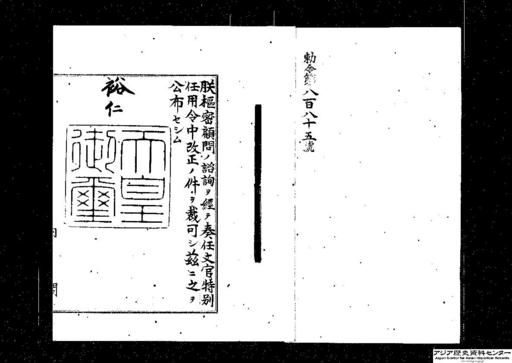 勅令第八百八十五號
朕樞密顧問ノ諮詢ヲ經テ奏任文官特別
任用令中改正ノ件ヲ裁可シ茲ニ之ヲ
公布セシム
裕仁
天皇
御璽
内
閣
アジア歴史資料センター
Japan Center for Asian Historical Records